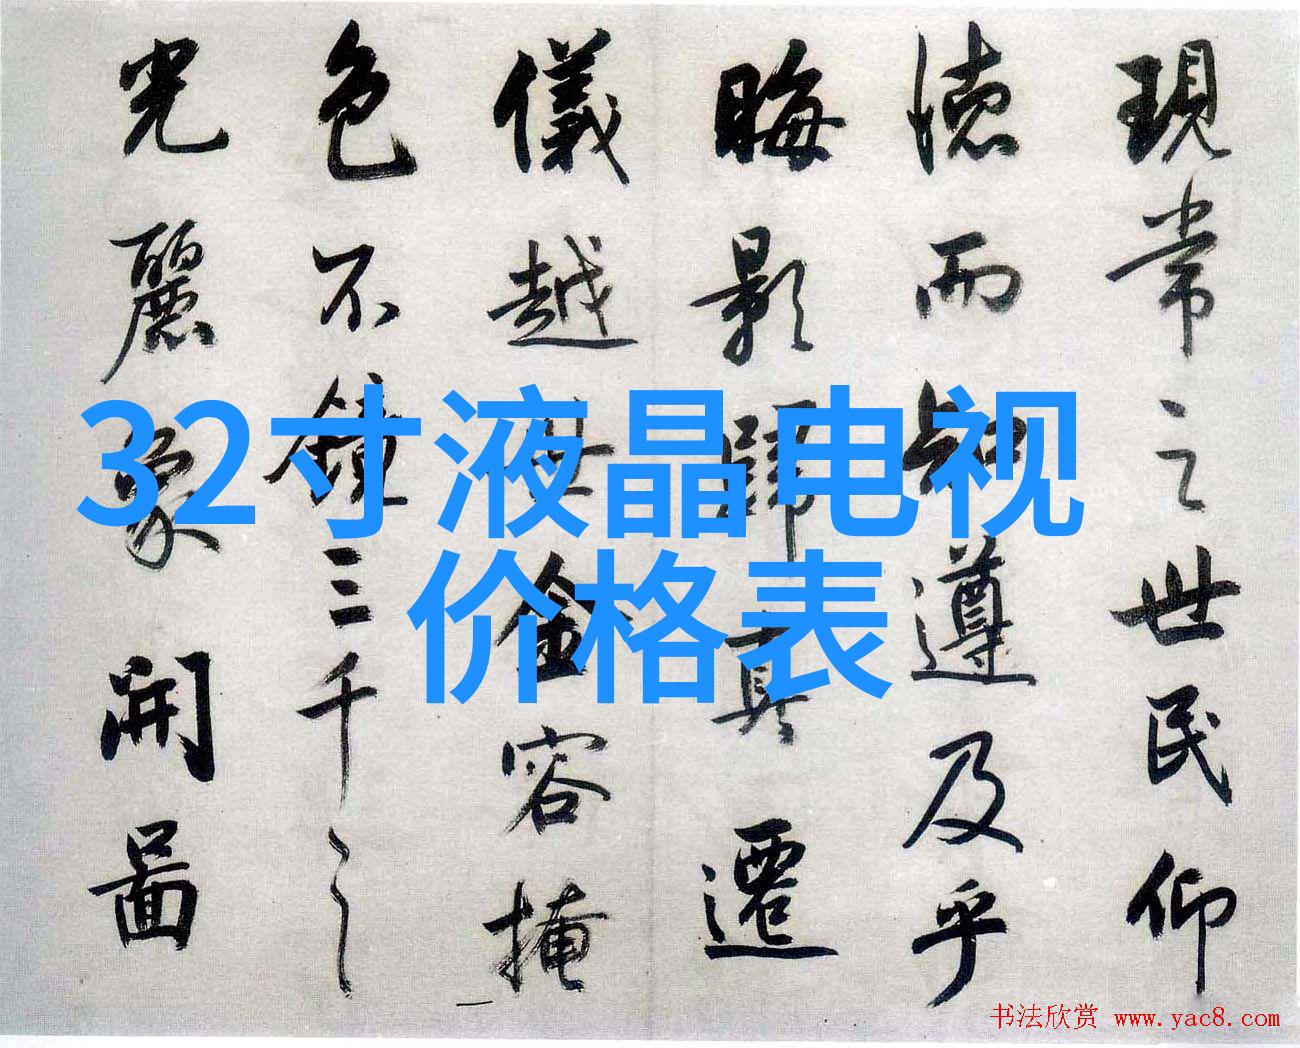 現常之世民仰
徳而知遵及乎
晦影歸真遷
儀越世金容掩
色不鏡三千之
光麗象開圖
32寸液晶电视
价格表
书法欣赏 www.yac8.com